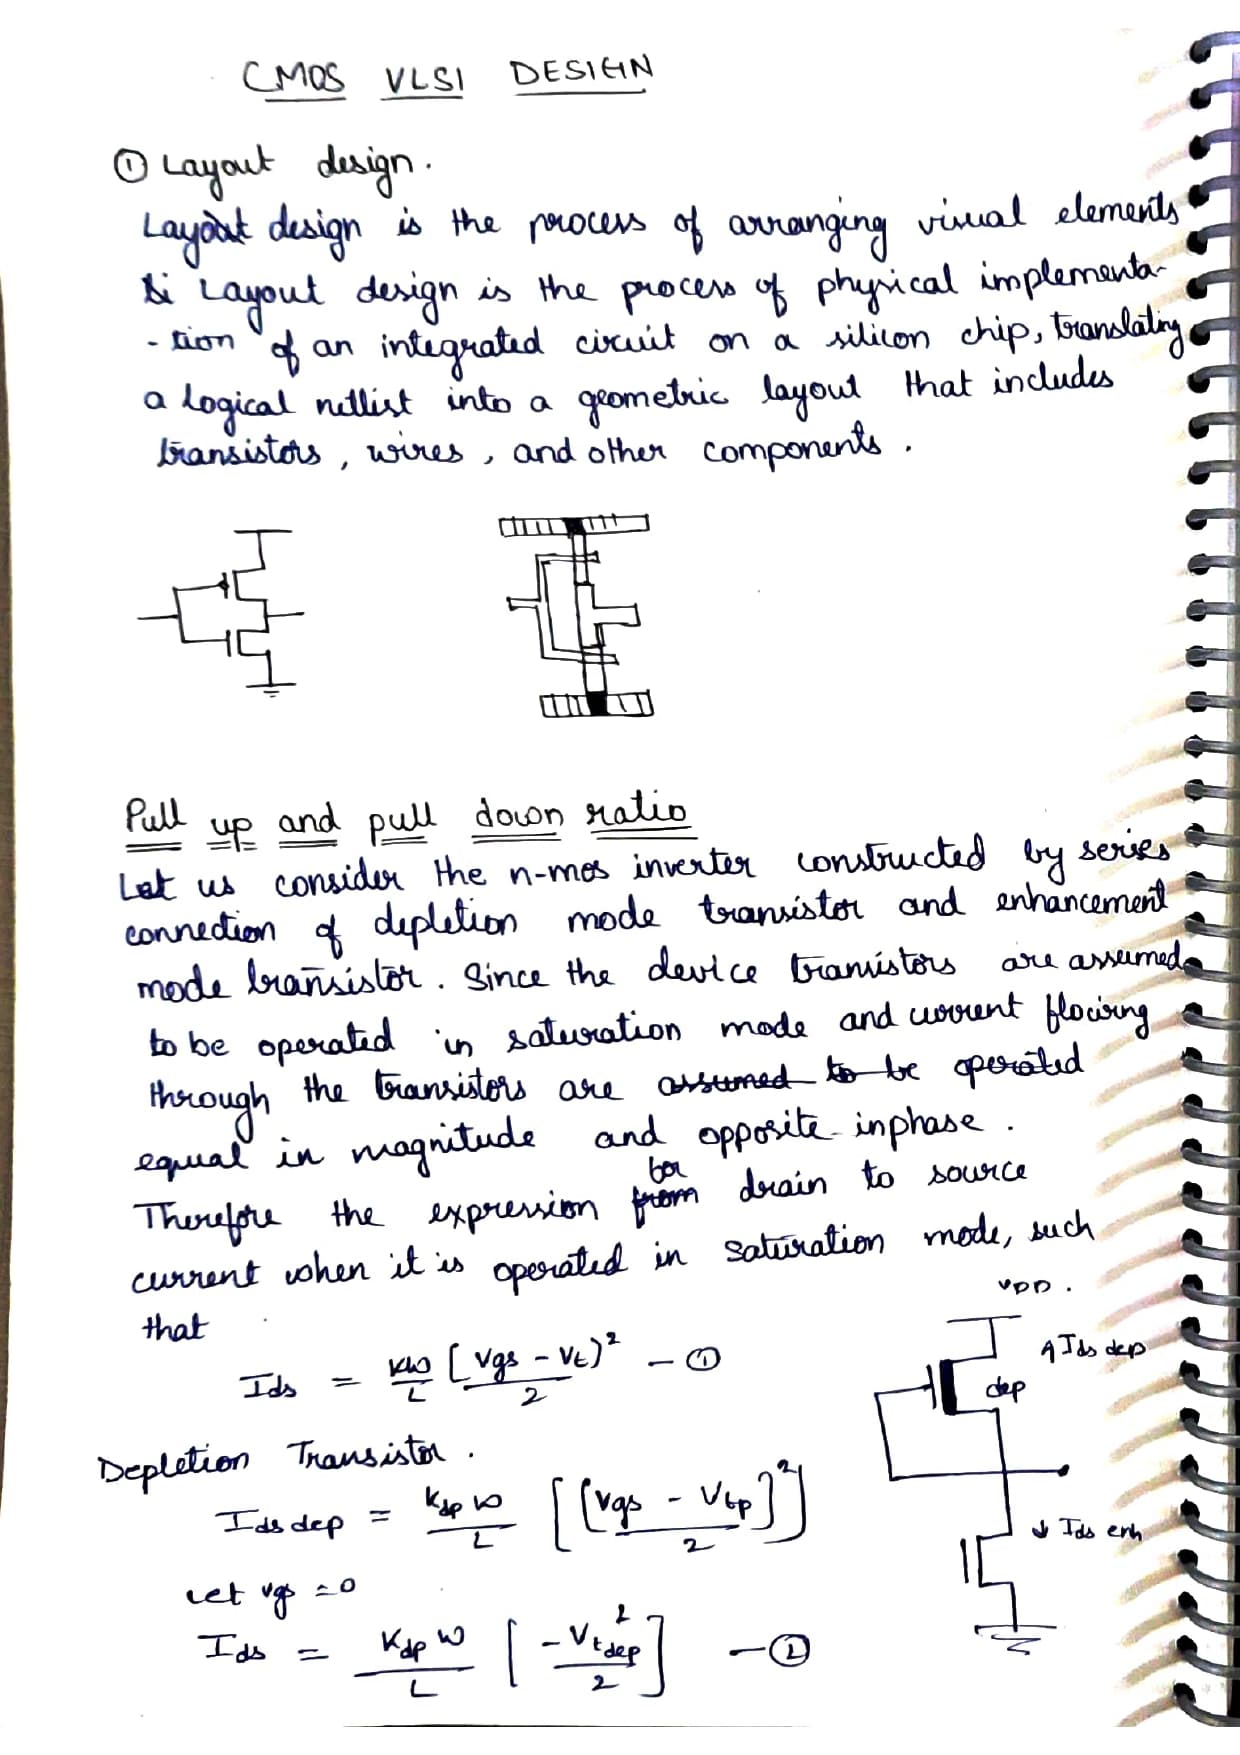 CMOS VLSI DESIGN
① Layout design.
Layout design is the process of arranging visual elements
Layout design is the process of physical implementa-
-tion of an integrated circuit on a silicon chip, translating
a logical netlist into a geometric layout that includes
transistors, wires, and other components.
Pull up and pull down ratio
Let us consider the n-mos inverter constructed by series
connection of depletion mode transistor and enhancement
mode transistor. Since the device transistors are assumed
to be operated in saturation mode and current flowing
through the transistors are assumed to be operated
equal in magnitude and opposite inphase.
for
Therefore the expression from drain to source
current when it is operated in saturation mode, such
that
VDD.
Ids = KW/L [Vgs - Vt)²/2 — ①
↑ Ids dep
dep
Depletion Transistor.
Ids dep = Kdp W/L [(Vgs - Vtp]²/2]
↓ Ids enh
Let Vgs = 0
Ids = Kdp W/L [-Vtdep²/2] — ②